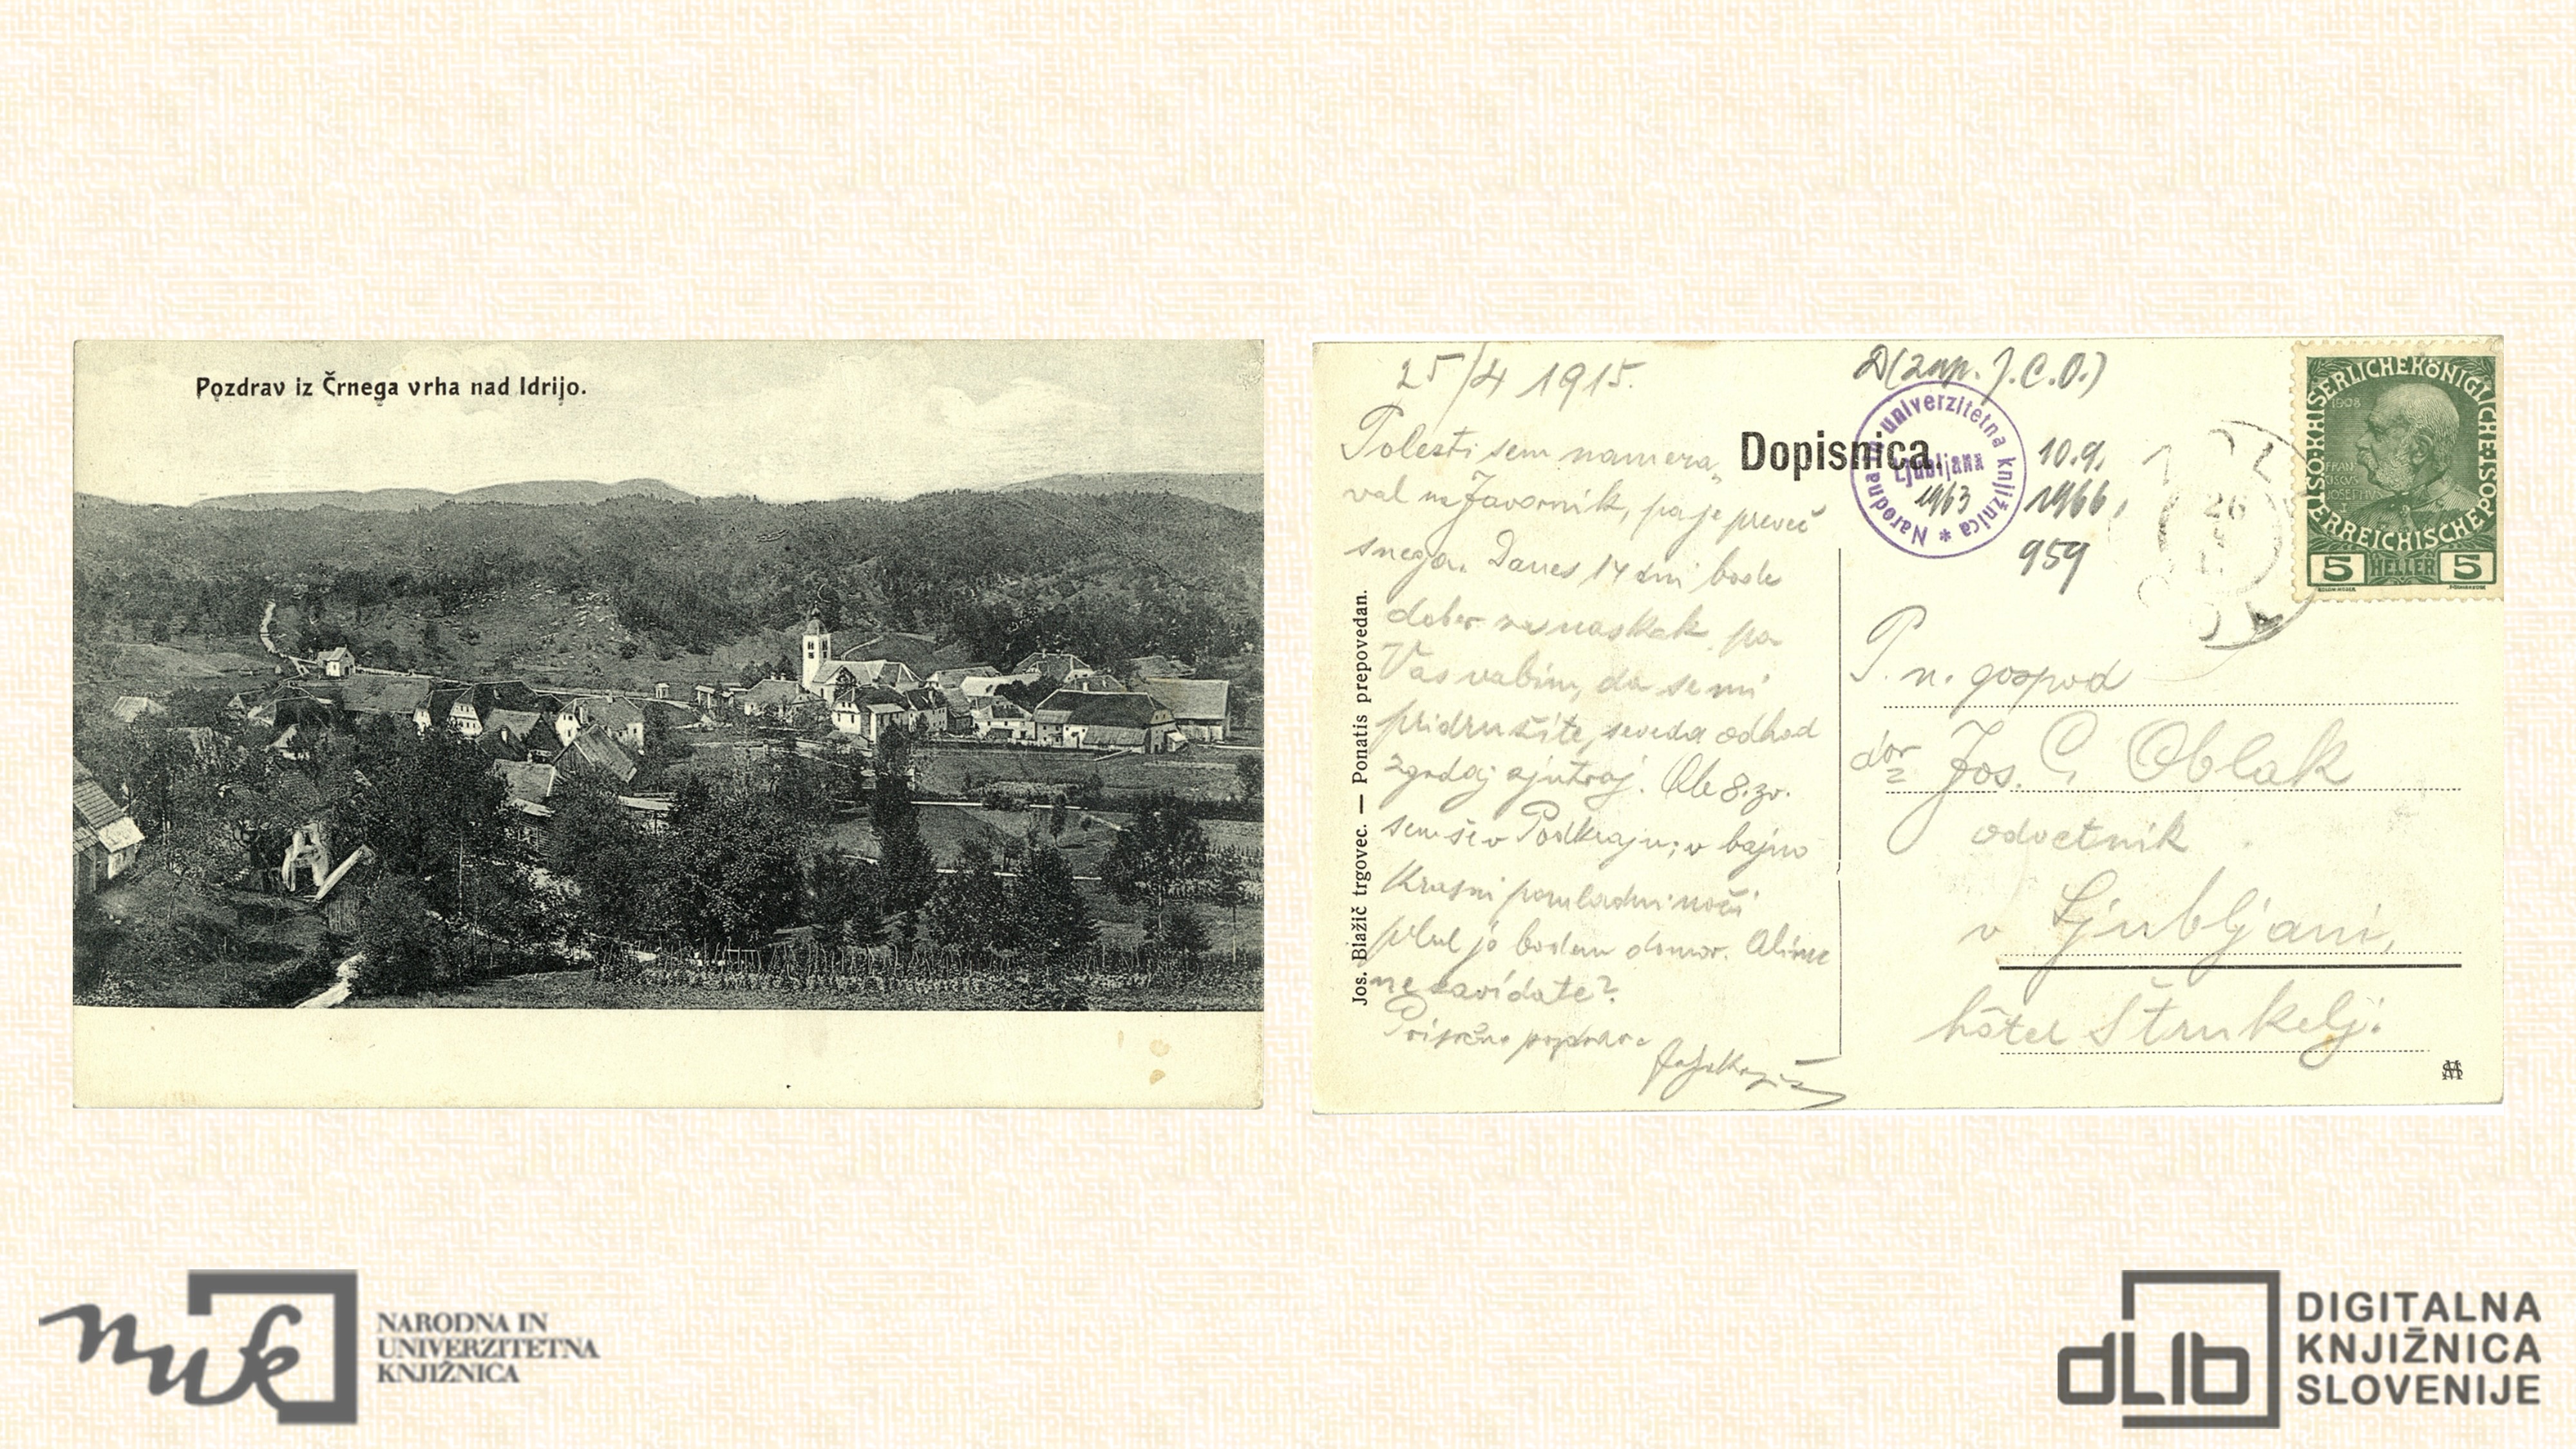 Pozdrav iz Črnega vrha nad Idrijo.
25/4 1915.
D(zap. J.C.O.)
sem namera„
val na Javornik, pa je preveč
snega. Danes 14 dni bode
dober pa
Vas vabim, da se mi
pridružite, seveda odhod
zgodaj zjutraj. Ob 8. zv.
sem še v Podkraju; v bajno
krasni pomladni noči
plul jo bodem domov. Ali me
ne zavidate?
Prisrčno pozdrav
Dopisnica.
Narodna in univerzitetna knjižnica *
Ljubljana
1963
10.9.
1966,
959
26
KAISERLICHE KÖNIGLICHE ÖSTERREICHISCHE POST
1908
FRAN
CISCVS
JOSEPHVS
I
5 HELLER 5
Jos. Blažič trgovec. — Ponatis prepovedan.
P. n. gospod
dor Jos. C. Oblak
odvetnik
v Ljubljani,
hôtel Štrukelj.
nuk
NARODNA IN
UNIVERZITETNA
KNJIŽNICA
dLib
DIGITALNA
KNJIŽNICA
SLOVENIJE